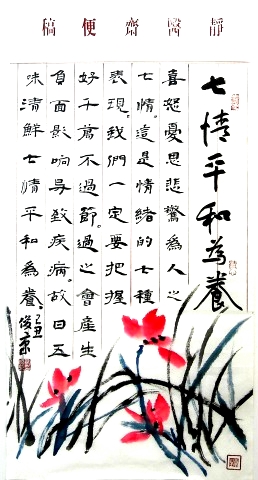 靜醫齋便稿
七情平和為養
喜怒憂思悲驚為人之
七情。這是情緒的七種
表現。我們一定要把握
好千萬不過節。過之會產生
負面影响导致疾病。故曰五
味清鮮七情平和為養。